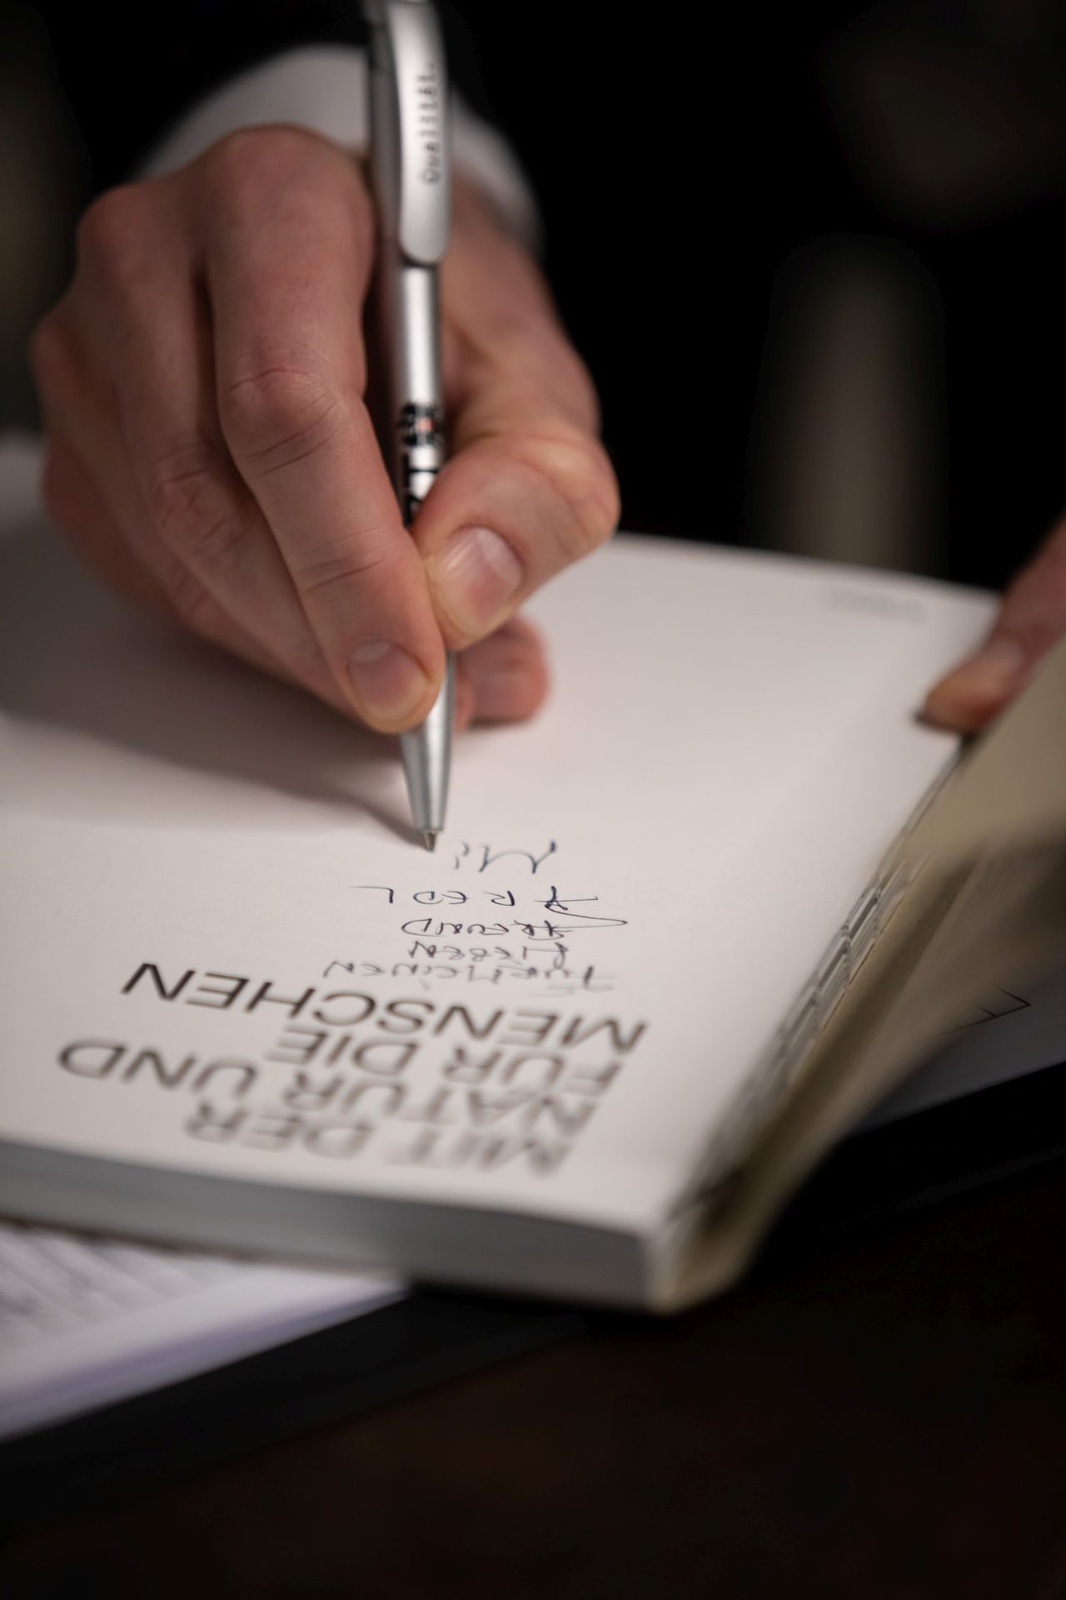 Qualität.
MIT DER
NATUR UND
FÜR DIE
MENSCHEN
FÜR MEINEN
LIEBEN
FREUND
FREDL
Mi